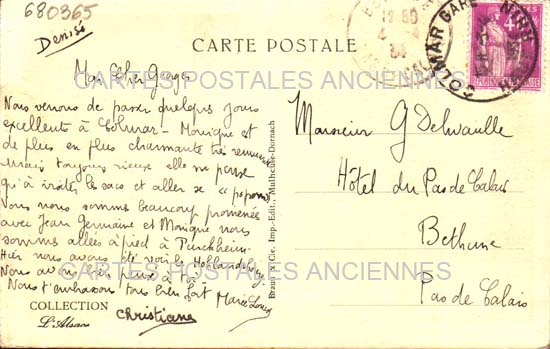 680365
Denise
CARTE POSTALE
CARTES POSTALES ANCIENNES
Mon Cher Georges
Nous venons de passer quelques jours
excellents à Colmar - Monique est
de plus en plus charmante très remuante
mais toujours rieuse elle ne pense
qu'à visiter les sacs et aller se "
Nous nous sommes beaucoup promenées
avec Jean Germaine et Monique nous
sommes allées à pied à
Hier nous avons été voir le Hollandsbourg
Nous avons
Nous t'embrassons tous bien fort Marie Louise
Christiane
COLLECTION
L'Alsace
Braun & Cie, Imp.-Édit., Mulhouse-Dornach
COLMAR GARE
Monsieur G Delwaulle
Hôtel du Pas de Calais
Béthune
Pas de Calais
CARTES POSTALES ANCIENNES